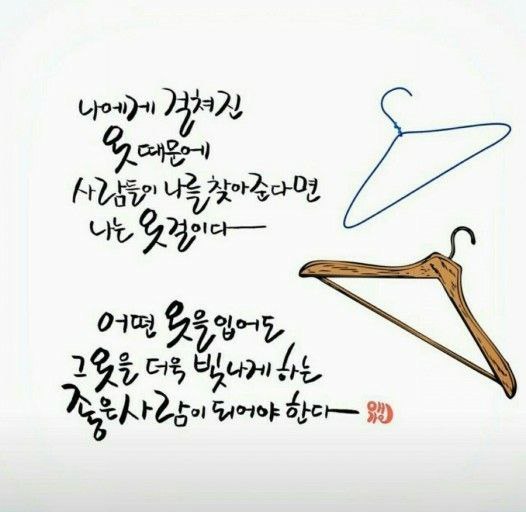 나에게 걸쳐진
옷 때문에
사람들이 나를 찾아준다면
나는 옷걸이다
어떤 옷을 입어도
그 옷을 더욱 빛나게 하는
좋은 사람이 되어야 한다